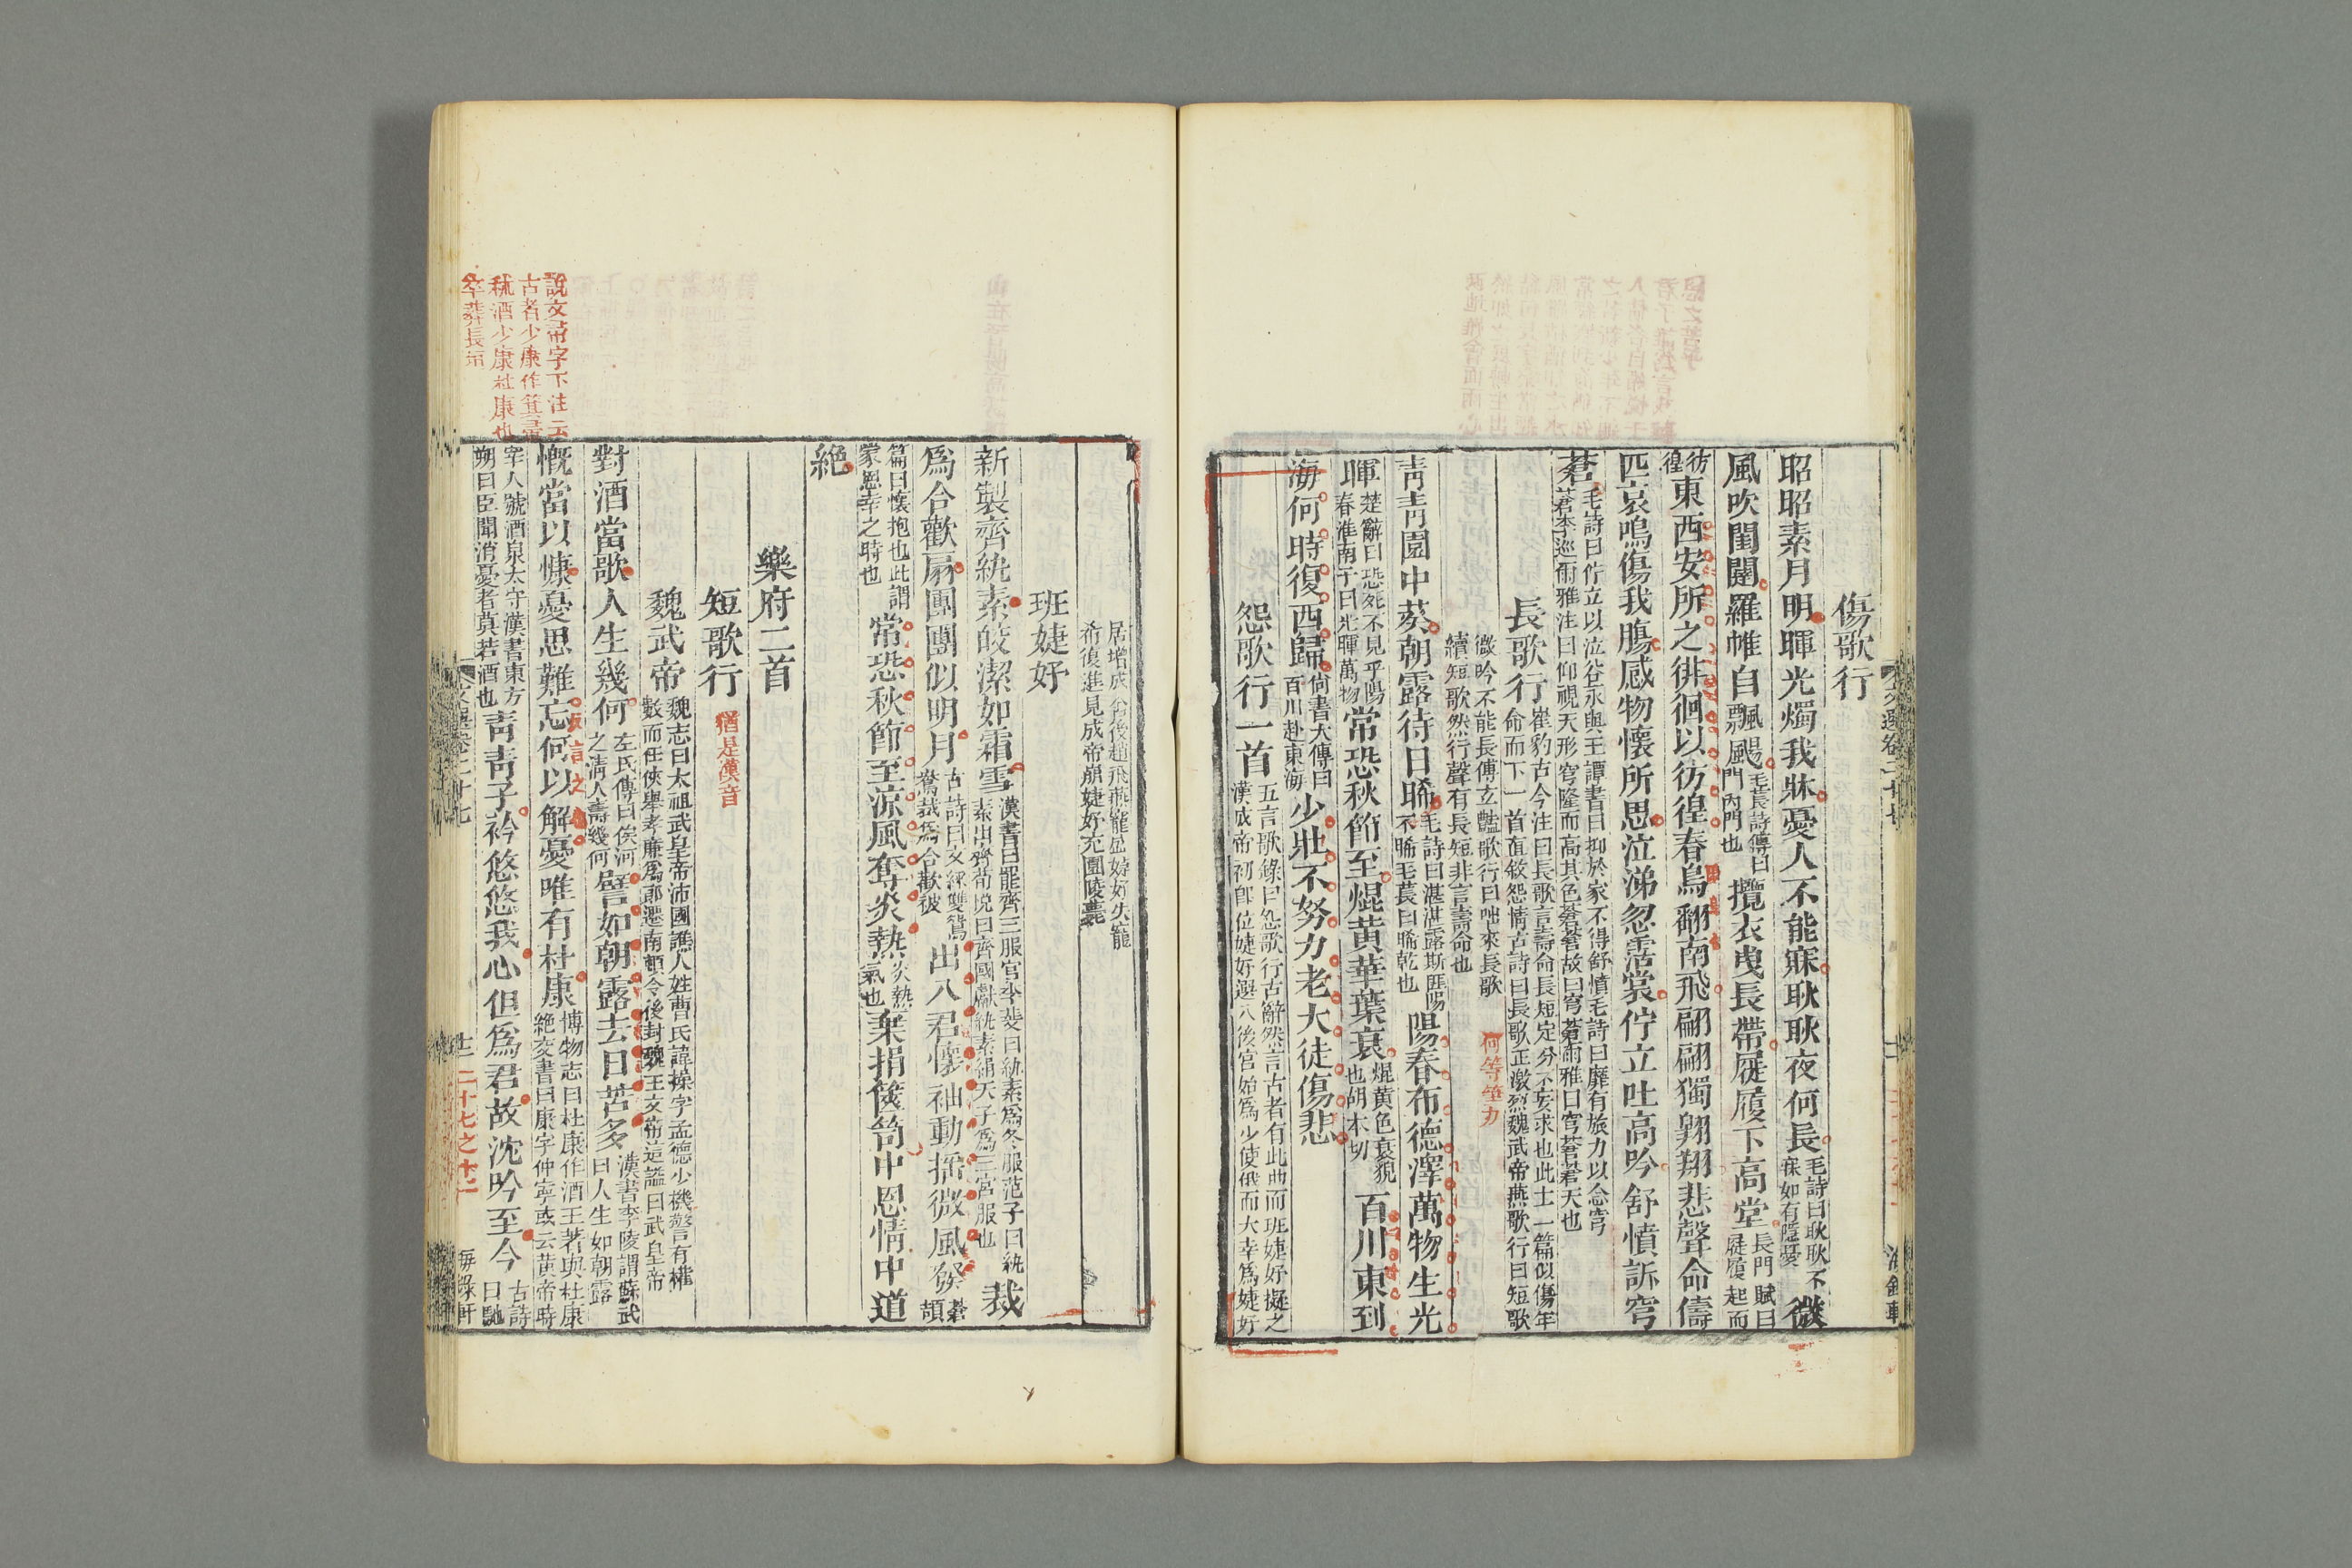 傷歌行
昭昭素月明暉光燭我牀憂人不能寐耿耿夜何長毛詩曰耿耿不寐如有隱憂微
風吹閨闥羅帷自飄颺毛萇詩傳曰闥門內門也攬衣曳長帶屣履下高堂長門賦曰屣履起而彷徨
東西安所之徘徊以彷徨春鳥翻南飛翩翩獨翱翔悲聲命儔
匹哀鳴傷我腸感物懷所思泣涕忽霑裳佇立吐高吟舒憤訴穹
蒼毛詩曰佇立以泣谷永與王譚書曰抑於家不得舒憤毛詩曰靡有旅力以念穹蒼李巡爾雅注曰仰視天形穹隆而高其色蒼蒼故曰穹蒼爾雅曰穹蒼蒼天也
長歌行崔豹古今注曰長歌言壽命長短定分不妄求也此上一篇似傷年命而下一首直敘怨情古詩曰長歌正激烈魏武帝燕歌行曰短歌
微吟不能長傅玄豔歌行曰咄來長歌續短歌然行聲有長短非言壽命也
何等筆力
青青園中葵朝露待日晞毛詩曰湛湛露斯匪陽不晞毛萇曰晞乾也陽春布德澤萬物生光
暉楚辭曰恐死不見乎陽春淮南子曰光暉萬物常恐秋節至焜黃華葉衰焜黃色衰貌也胡本切百川東到
海何時復西歸尚書大傳曰百川赴東海少壯不努力老大徒傷悲
怨歌行一首五言歌錄曰怨歌行古辭然言古者有此曲而班婕妤擬之漢成帝初即位婕妤選入後宮始爲少使俄而大幸爲婕妤
居增成舍後趙飛燕寵盛婕妤失寵希復進見成帝崩婕妤充園陵薨
班婕妤
新製齊紈素皎潔如霜雪漢書曰罷齊三服官李斐曰紈素爲冬服范子曰紈素出齊荀悅曰齊國獻紈素絹天子爲三官服也裁
爲合歡扇團團似明月古詩曰文綵雙鴛鴦裁爲合歡被出入君懷袖動搖微風發蒼頡
篇曰懷抱也此謂蒙恩幸之時也常恐秋節至涼風奪炎熱炎熱氣也棄捐篋笥中恩情中道
絕
樂府二首
短歌行
猶是漢音
魏武帝魏志曰太祖武皇帝沛國譙人姓曹氏諱操字孟德少機警有權數而任俠舉孝廉爲郎遷南頓令後封魏王文帝追謚曰武皇帝
對酒當歌人生幾何左氏傳曰俟河之清人壽幾何譬如朝露去日苦多漢書李陵謂蘇武曰人生如朝露
慨當以慷憂思難忘何以解憂唯有杜康博物志曰杜康作酒王著與杜康絕交書曰康字仲寧或云黃帝時
宰人號酒泉太守漢書東方朔曰臣聞消憂者莫若酒也青青子衿悠悠我心但爲君故沈吟至今古詩曰馳
說文帚字下注云
古者少康作箕帚
秫酒少康杜康也
卒葬長垣
二十七之十二
海錄軒